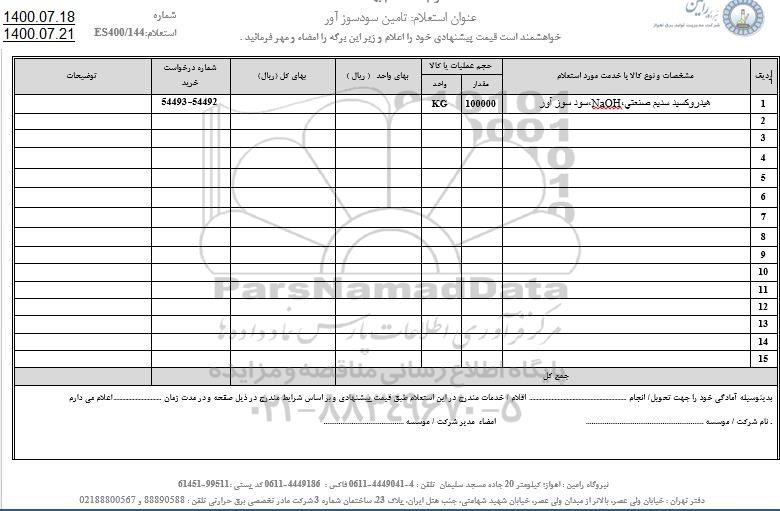 رامین
شرکت مدیریت تولید برق اهواز
عنوان استعلام: تامین سودسوز آور
شماره
1400.07.18
استعلام:ES400/144
1400.07.21
خواهشمند است قیمت پیشنهادی خود را اعلام و زیر این برگه را امضاء و مهر فرمائید .
ردیف مشخصات و نوع کالا یا خدمت مورد استعلام حجم عملیات یا کالا بهای واحد ( ریال ) بهای کل (ریال) شماره درخواست خرید توضیحات
مقدار واحد
1 هیدروکسید سدیم صنعتی،NaOH،سود سوز آور 100000 KG 54493-54492
2
3
4
5
6
7
8
9
10
11
12
13
14
15
جمع کل
بدینوسیله آمادگی خود را جهت تحویل/ انجام .......... اقلام / خدمات مندرج در این استعلام طبق قیمت پیشنهادی و بر اساس شرایط مندرج در ذیل صفحه و در مدت زمان .......... اعلام می دارم
. نام شرکت / موسسه .......... امضاء مدیر شرکت / موسسه ..........
نیروگاه رامین : اهواز؛ کیلومتر 20 جاده مسجد سلیمان تلفن : 4-4449041-0611 فاکس : 4449186-0611 کد پستی :99511-61451
دفتر تهران : خیابان ولی عصر، بالاتر از میدان ولی عصر، خیابان شهید شهامتی، جنب هتل ایران، پلاک 23، ساختمان شماره 3 شرکت مادر تخصصی برق حرارتی تلفن : 88890588 و 02188800567
ParsNamadData
مرکز فرآوری اطلاعات پارس نماد داده ها
پایگاه اطلاع رسانی مناقصه و مزایده
۰۲۱-۸۸۳۴۹۶۷۰-۵